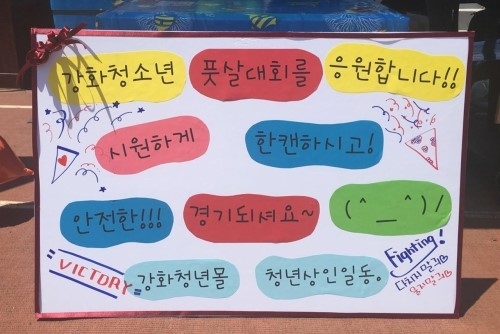 강화청소년 풋살대회를 응원합니다!!
시원하게 한캔하시고!
안전한!!! 경기되셔요~ (^_^)/
VICTORY 강화청년몰 청년상인일동。
Fighting!
다치지 말긔
울지말긔